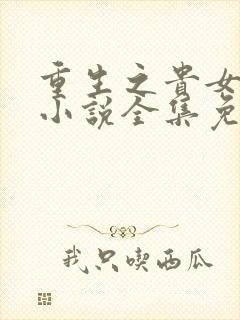 重生之貴女
小說全集免
我只喫西瓜